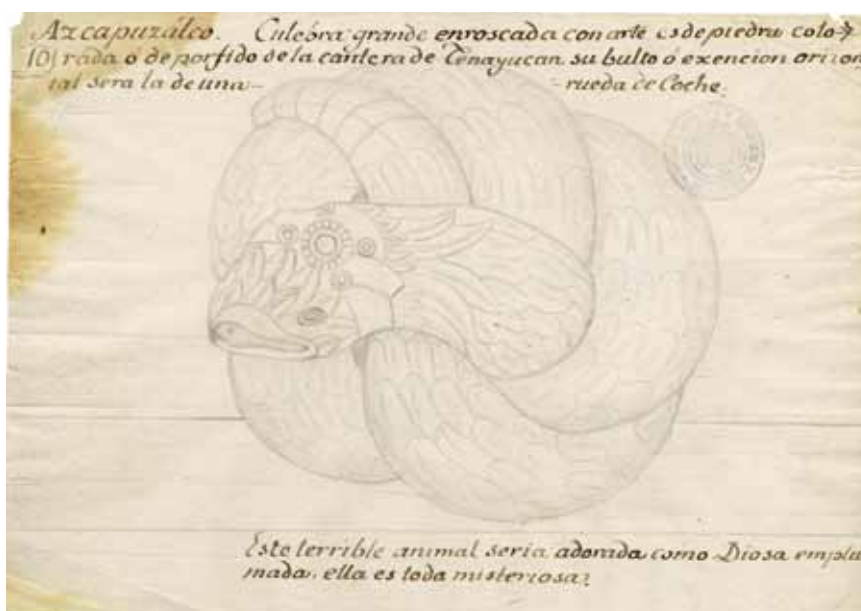 Azcapuzálco. Culebra grande enroscada con arte es de piedra colo
10 rada ó de porfido de la cantera de Tenayucan su bulto ó exencion orizon
tal sera la de una – – rueda de Coche.
Este terrible animal seria adorada como Diosa emplu
mada, ella es toda misteriosa: